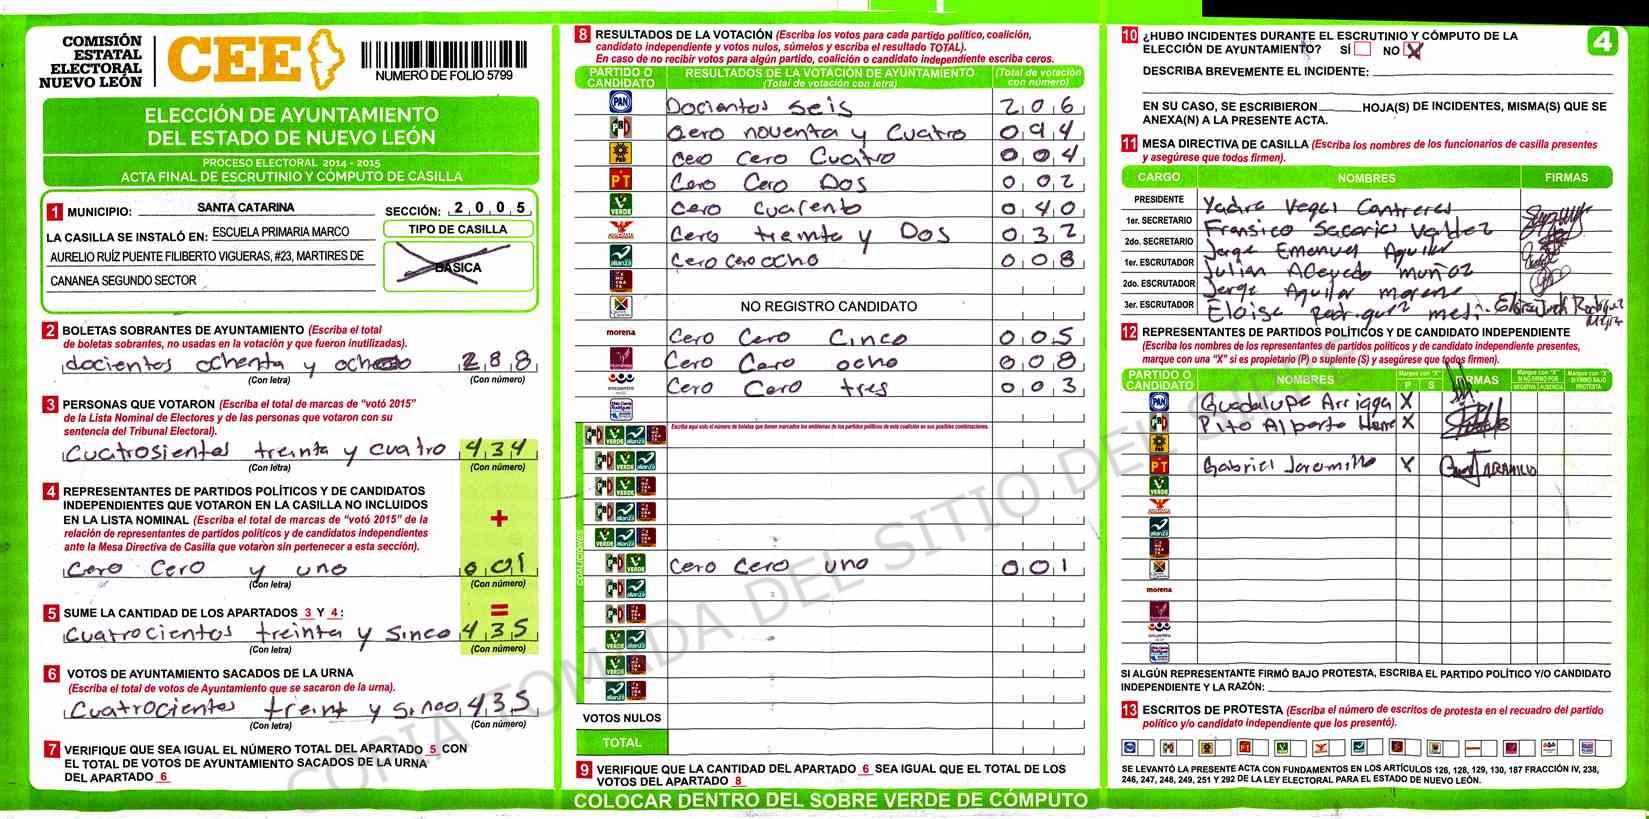 COMISIÓN
ESTATAL
ELECTORAL
NUEVO LEÓN
CEE
NUMERO DE FOLIO 5799
ELECCIÓN DE AYUNTAMIENTO
DEL ESTADO DE NUEVO LEÓN
PROCESO ELECTORAL 2014 - 2015
ACTA FINAL DE ESCRUTINIO Y CÓMPUTO DE CASILLA
1 MUNICIPIO: SANTA CATARINA SECCIÓN: 2005
LA CASILLA SE INSTALÓ EN: ESCUELA PRIMARIA MARCO
AURELIO RUÍZ PUENTE FILIBERTO VIGUERAS, #23, MARTIRES DE
CANANEA SEGUNDO SECTOR
TIPO DE CASILLA
BASICA
2 BOLETAS SOBRANTES DE AYUNTAMIENTO (Escriba el total
de boletas sobrantes, no usadas en la votación y que fueron inutilizadas).
docientos ochenta y ocho 288
(Con letra) (Con número)
3 PERSONAS QUE VOTARON (Escriba el total de marcas de "votó 2015"
de la Lista Nominal de Electores y de las personas que votaron con su
sentencia del Tribunal Electoral).
Cuatrosientos treinta y cuatro 434
(Con letra) (Con número)
4 REPRESENTANTES DE PARTIDOS POLÍTICOS Y DE CANDIDATOS
INDEPENDIENTES QUE VOTARON EN LA CASILLA NO INCLUIDOS
EN LA LISTA NOMINAL (Escriba el total de marcas de "votó 2015" de la
relación de representantes de partidos políticos y de candidatos independientes
ante la Mesa Directiva de Casilla que votaron sin pertenecer a esta sección).
+
Cero Cero y uno 001
(Con letra) (Con número)
=
5 SUME LA CANTIDAD DE LOS APARTADOS 3 Y 4:
Cuatrocientos treinta y sinco 435
(Con letra) (Con número)
6 VOTOS DE AYUNTAMIENTO SACADOS DE LA URNA
(Escriba el total de votos de Ayuntamiento que se sacaron de la urna).
Cuatrocientos treint y sinco 435
(Con letra) (Con número)
7 VERIFIQUE QUE SEA IGUAL EL NÚMERO TOTAL DEL APARTADO 5 CON
EL TOTAL DE VOTOS DE AYUNTAMIENTO SACADOS DE LA URNA
DEL APARTADO 6
8 RESULTADOS DE LA VOTACIÓN (Escriba los votos para cada partido político, coalición,
candidato independiente y votos nulos, súmelos y escriba el resultado TOTAL).
En caso de no recibir votos para algún partido, coalición o candidato independiente escriba ceros.
PARTIDO O CANDIDATO
RESULTADOS DE LA VOTACIÓN DE AYUNTAMIENTO
(Total de votación con letra)
(Total de votación con número)
PAN Docientos seis 206
PRD Cero noventa y Cuatro 094
PRD Cero Cero Cuatro 004
PT Cero Cero Dos 002
VERDE Cero Cuarenta 040
Cero treinta y Dos 032
alianza Cero Cero ocho 008
NO REGISTRO CANDIDATO
morena Cero Cero Cinco 005
Cero Cero ocho 008
encuentro Cero Cero tres 003
Escriba aquí solo el número de boletas que tienen marcados los emblemas de los partidos políticos de esta coalición en sus posibles combinaciones.
COALICIONES
VERDE Cero Cero uno 001
VOTOS NULOS
TOTAL
9 VERIFIQUE QUE LA CANTIDAD DEL APARTADO 6 SEA IGUAL QUE EL TOTAL DE LOS
VOTOS DEL APARTADO 8
COLOCAR DENTRO DEL SOBRE VERDE DE CÓMPUTO
10 ¿HUBO INCIDENTES DURANTE EL ESCRUTINIO Y CÓMPUTO DE LA
ELECCIÓN DE AYUNTAMIENTO? SÍ NO X
4
DESCRIBA BREVEMENTE EL INCIDENTE:
EN SU CASO, SE ESCRIBIERON HOJA(S) DE INCIDENTES, MISMA(S) QUE SE
ANEXA(N) A LA PRESENTE ACTA.
11 MESA DIRECTIVA DE CASILLA (Escriba los nombres de los funcionarios de casilla presentes
y asegúrese que todos firmen).
CARGO NOMBRES FIRMAS
PRESIDENTE Yadra Vegas Contreras
1er. SECRETARIO Fransico Sacarias Valdez
2do. SECRETARIO Jorge Emanuel Aguilar
1er. ESCRUTADOR Julian Acevedo muñoz
2do. ESCRUTADOR Jorge Aguilar moreno
3er. ESCRUTADOR Eloisa Rodriguez
12 REPRESENTANTES DE PARTIDOS POLÍTICOS Y DE CANDIDATO INDEPENDIENTE
(Escriba los nombres de los representantes de partidos políticos y de candidato independiente presentes,
marque con una "X" si es propietario (P) o suplente (S) y asegúrese que todos firmen).
PARTIDO O CANDIDATO
NOMBRES
Marque con "X"
P S
FIRMAS
Marque con "X" SI NO FIRMÓ POR
NEGATIVA AUSENCIA
Marque con "X" SI FIRMÓ BAJO PROTESTA
PAN Guadalupe Arriaga X
Pito Alberto X
PT Gabriel Jaramillo X JARAMILLO
VERDE
morena
encuentro
SI ALGÚN REPRESENTANTE FIRMÓ BAJO PROTESTA, ESCRIBA EL PARTIDO POLÍTICO Y/O CANDIDATO
INDEPENDIENTE Y LA RAZÓN:
13 ESCRITOS DE PROTESTA (Escriba el número de escritos de protesta en el recuadro del partido
político y/o candidato independiente que los presentó).
SE LEVANTÓ LA PRESENTE ACTA CON FUNDAMENTOS EN LOS ARTÍCULOS 126, 128, 129, 130, 187 FRACCIÓN IV, 238,
246, 247, 248, 249, 251 Y 292 DE LA LEY ELECTORAL PARA EL ESTADO DE NUEVO LEÓN.
COPIA TOMADA DEL SITIO DEL SIPRE